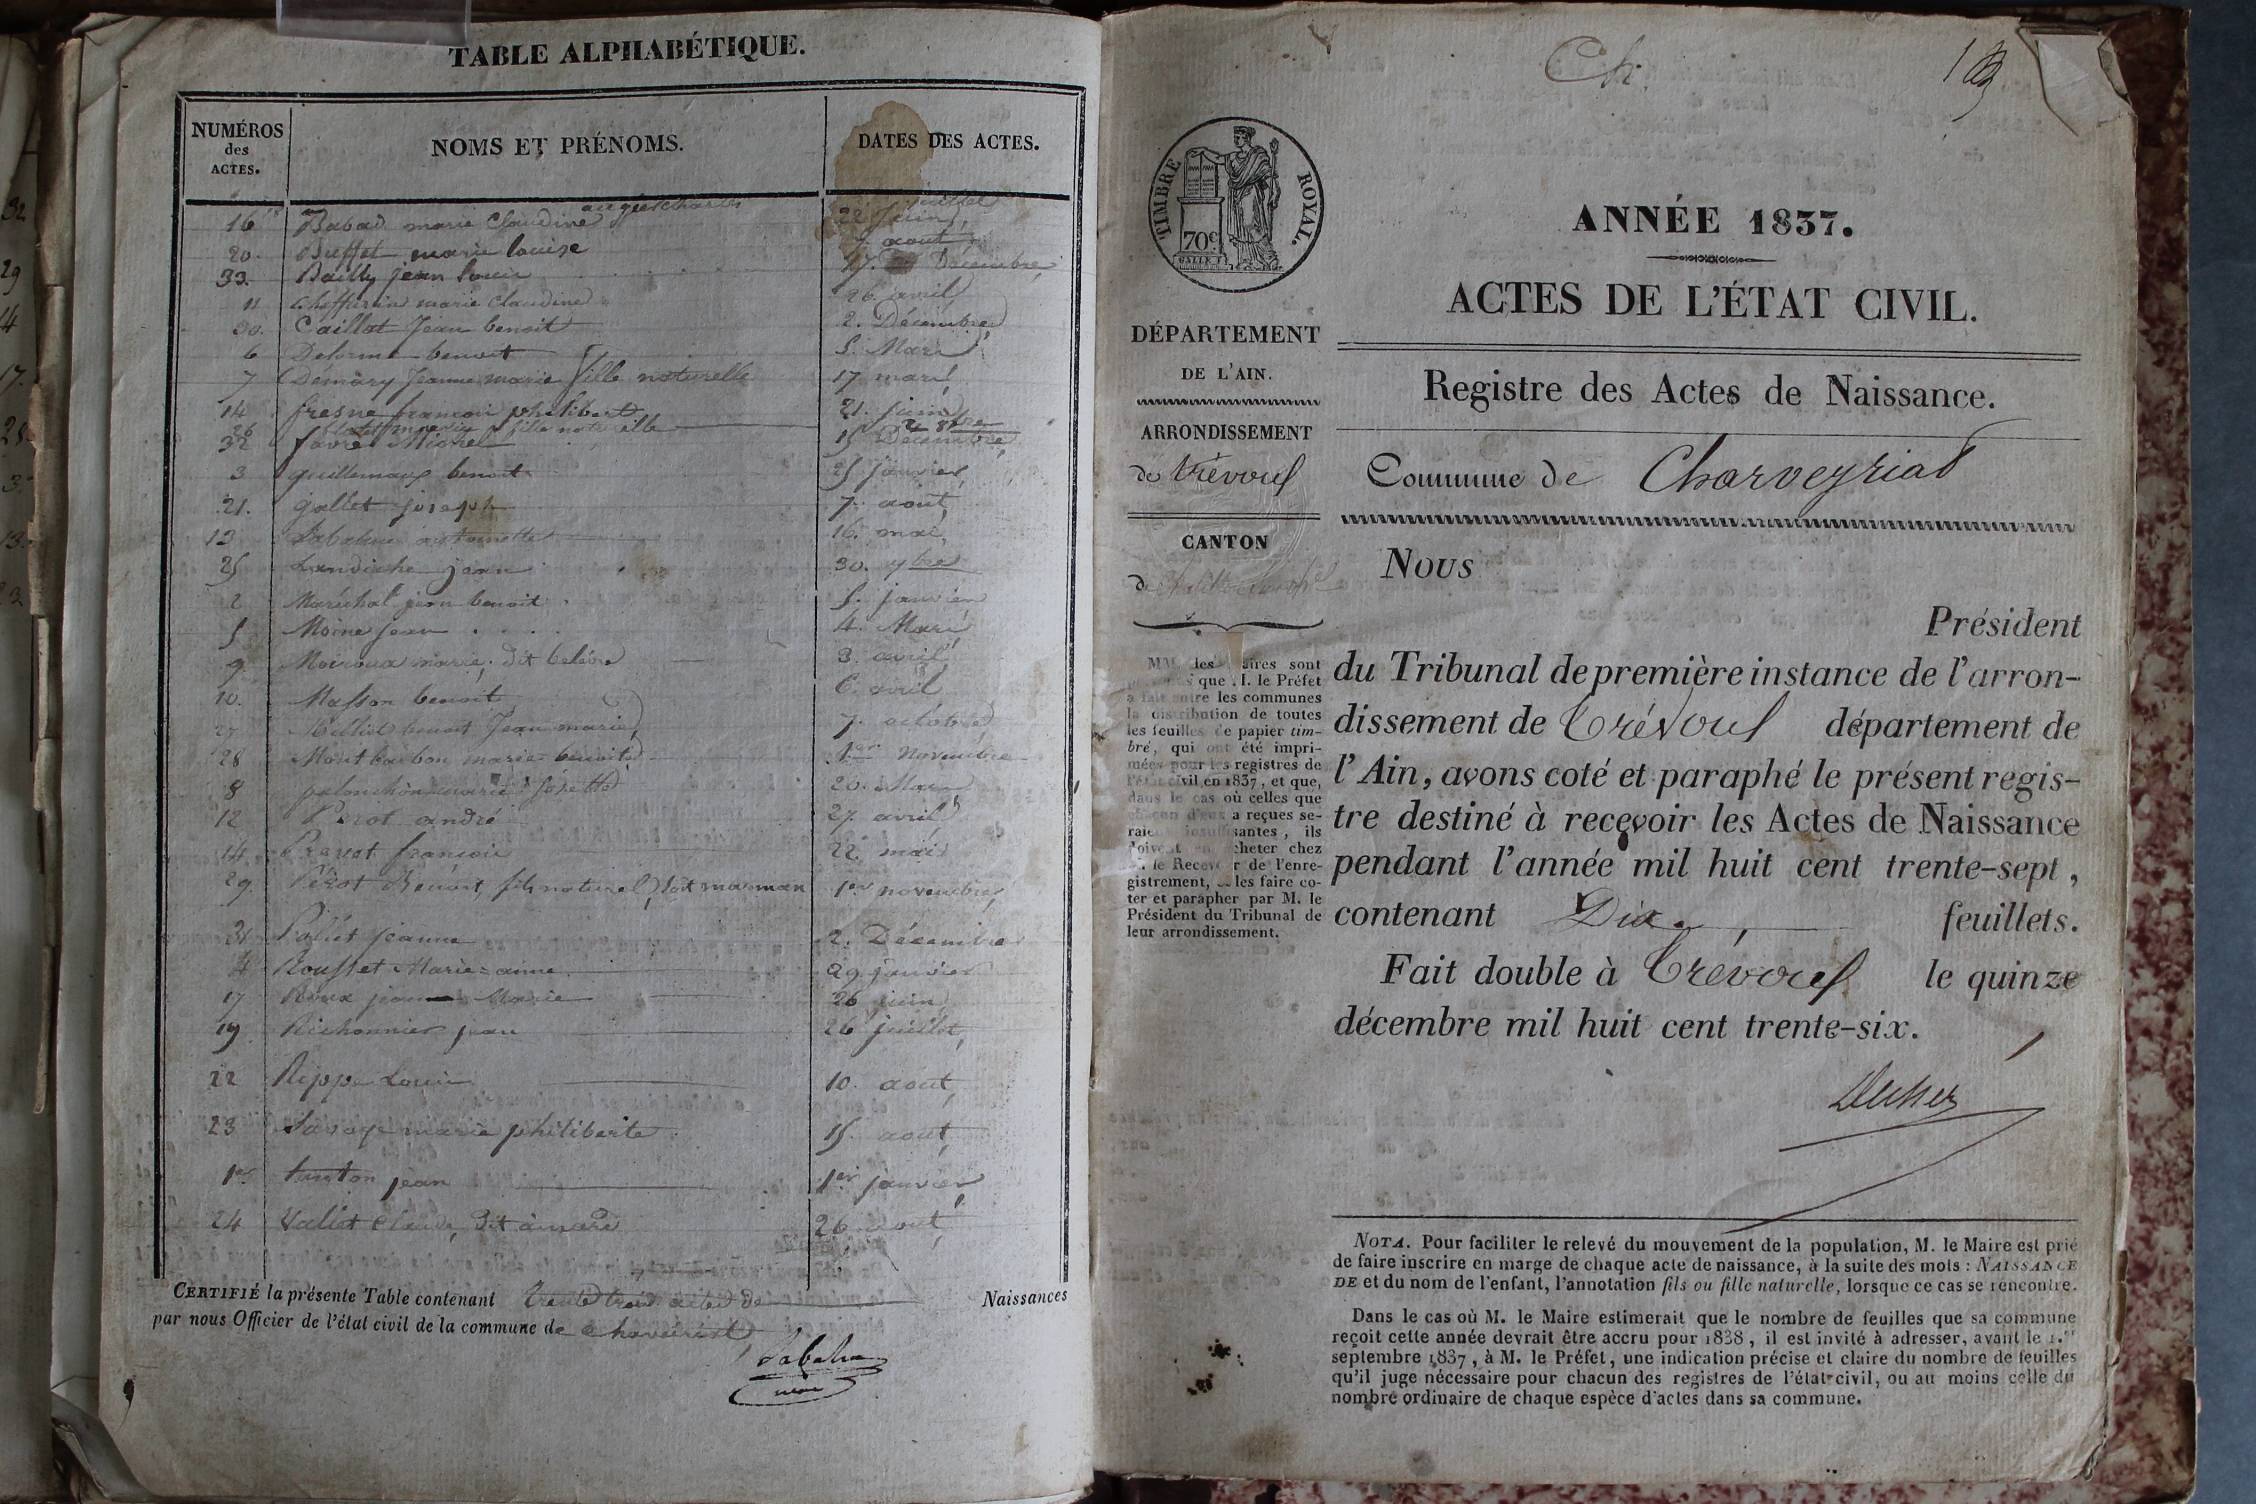 TABLE ALPHABÉTIQUE.
NUMÉROS des ACTES. NOMS ET PRÉNOMS. DATES DES ACTES.
16 Babad marie Claudine 22 Juin
20. Buffet marie louise 7. aout
33. Bailly jean louis 17. Décembre
11 marie Claudine 26 avril
30. Caillat Jean benoit 2. Décembre
6 Delorme benoit 5. Mars
7 Démàry Jeanne marie fille naturelle 17 mars
14 fresne francois philibert 21. juin
26 fille naturelle
32 favre Michel 15 Décembre
3 guillemaux benoit 25 janvier
21. gallet joseph 7. aout
13 Labalme antoinette 16. mai
25 Landiche jean 30. 7bre
2 Maréchal jean benoit 5. janvier
5 Moine jean 4. Mars
9. Moiroux marie. dit 3. avril
10. Masson benoit 6. avril
27 benoit Jean marie 7. octobre
28 Montbarbon marie benoite 1er Novembre
8 marie josette 20. Mars
12 Pérot andré 27. avril
14 francois 22. mai
29. Pérot Benoit, fils naturel, dit maman 1er novembre
31 Jeanne 2. Décembre
4 Rousset Marie=anne 29 janvier
17 Roux jeanne Marie 26 juin
19 Richonnier jean 26 juillet
22 Rippe Louis 10. aout
23 Savoye marie philiberte 15. aout
1er jean 1er janvier
24 Vallet Claude, dit 26. aout
CERTIFIÉ la présente Table contenant trente trois actes de Naissances
par nous Officier de l'état civil de la commune de
Labalme
maire
Ch.
TIMBRE ROYAL.
70c
ANNÉE 1837.
ACTES DE L'ÉTAT CIVIL.
DÉPARTEMENT
DE L'AIN.
Registre des Actes de Naissance.
ARRONDISSEMENT
de trévoux
Commune de Charveyriat
CANTON
de
Nous
Président
du Tribunal de première instance de l'arron-
dissement de Trévoux département de
l'Ain, avons coté et paraphé le présent regis-
tre destiné à recevoir les Actes de Naissance
pendant l'année mil huit cent trente-sept,
contenant Dix feuillets.
Fait double à Trévoux le quinze
décembre mil huit cent trente-six.
MM. les Maires sont
que M. le Préfet
a fait entre les communes
la distribution de toutes
les feuilles de papier tim-
bré, qui ont été impri-
mées pour les registres de
l'état civil en 1837, et que,
dans le cas où celles que
chacun d'eux a reçues se-
raient insuffisantes, ils
doivent en acheter chez
M. le Receveur de l'enre-
gistrement, et les faire co-
ter et parapher par M. le
Président du Tribunal de
leur arrondissement.
NOTA. Pour faciliter le relevé du mouvement de la population, M. le Maire est prié
de faire inscrire en marge de chaque acte de naissance, à la suite des mots : NAISSANCE
DE et du nom de l'enfant, l'annotation fils ou fille naturelle, lorsque ce cas se rencontre.
Dans le cas où M. le Maire estimerait que le nombre de feuilles que sa commune
reçoit cette année devrait être accru pour 1838, il est invité à adresser, avant le 1.er
septembre 1837, à M. le Préfet, une indication précise et claire du nombre de feuilles
qu'il juge nécessaire pour chacun des registres de l'état-civil, ou au moins celle du
nombre ordinaire de chaque espèce d'actes dans sa commune.